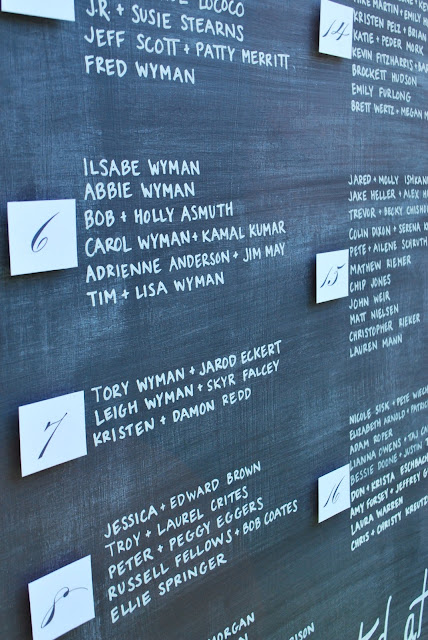 LOCOCO
J.R. + SUSIE STEARNS
JEFF SCOTT + PATTY MERRITT
FRED WYMAN
6
ILSABE WYMAN
ABBIE WYMAN
BOB + HOLLY ASMUTH
CAROL WYMAN + KAMAL KUMAR
ADRIENNE ANDERSON + JIM MAY
TIM + LISA WYMAN
7
TORY WYMAN + JAROD ECKERT
LEIGH WYMAN + SKYR FALCEY
KRISTEN + DAMON REDD
8
JESSICA + EDWARD BROWN
TROY + LAUREL CRITES
PETER + PEGGY EGGERS
RUSSELL FELLOWS + BOB COATES
ELLIE SPRINGER
MORGAN
14
MARTIN + EMILY
KRISTEN PELZ + BRIAN
KATIE + PEDER MORK
KEVIN FITZHARRIS +
BROCKETT HUDSON
EMILY FURLONG
BRETT WERTZ + MEGAN
15
JARED + MOLLY
JAKE HELLER + ALEX
TREVOR + BECKY
COLIN DIXON + SERENA
PETE + AILENE
MATHEW RIEMER
CHIP JONES
JOHN WEIR
MATT NIELSEN
CHRISTOPHER RIEKER
LAUREN MANN
16
NICOLE SISK + PETE
ELIZABETH ARNOLD +
ADAM ROPER
LIANNA OWENS + TAJ
BESSIE DOONE + JUSTIN
DON + KRISTA ESCHBACH
AMY FORSEY + JEFFREY
LAURA WARREN
CHRIS + CHRISTY KREUTZ